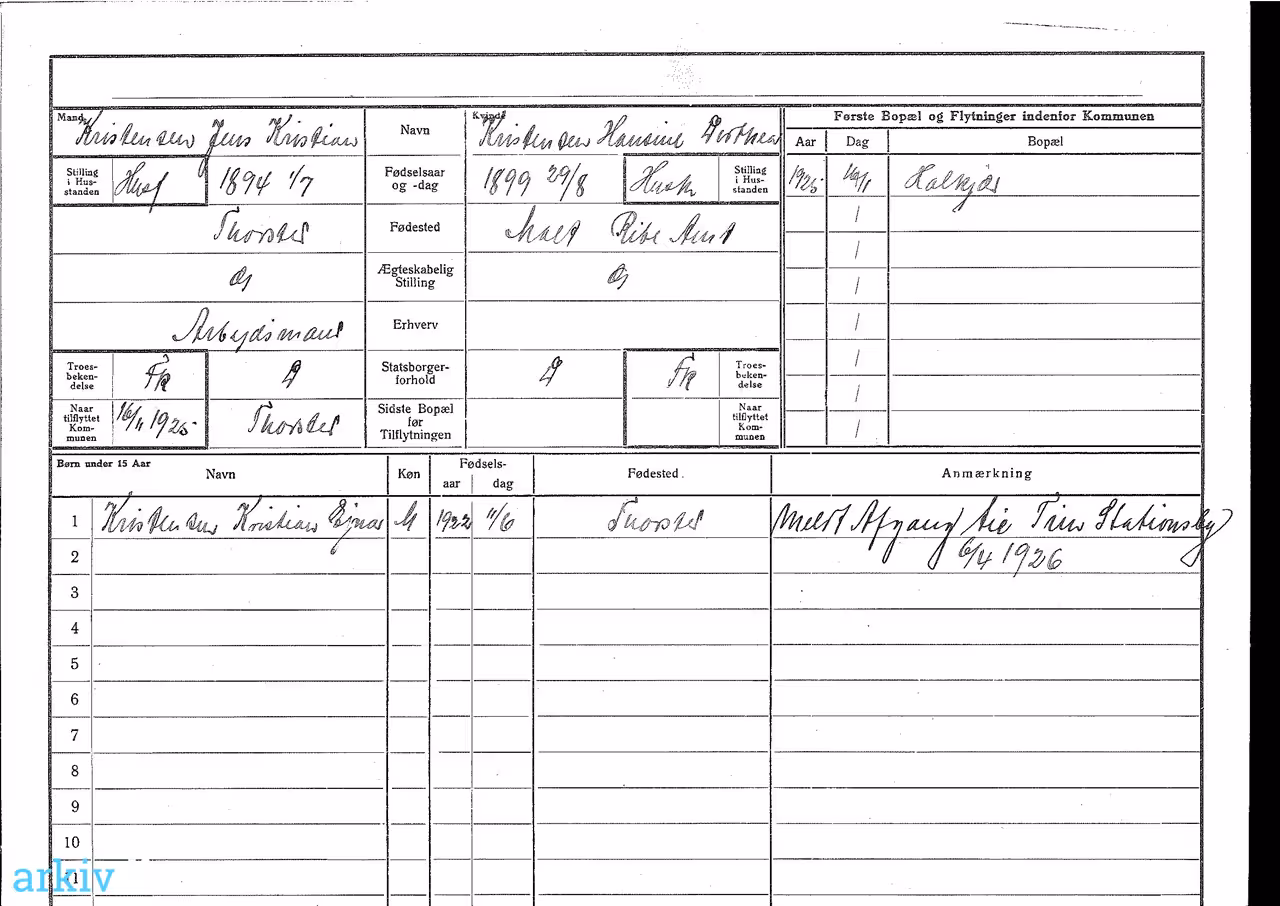 Mand Kvinde Første Bopæl og Flytninger indenfor Kommunen
Kristensen Jens Kristian Navn Kristensen Hansine Dorthea Aar Dag Bopæl
Stilling i Hus- standen Husf 1894 1/7 Fødselsaar og -dag 1899 29/8 Husm Stilling i Hus- standen 1925 16/11 Halkjær
Thorsted Fødested Malt Ribe Amt /
G Ægteskabelig Stilling G /
Arbejdsmand Erhverv /
Troes- beken- delse Fk D Statsborger- forhold D Fk Troes- beken- delse /
Naar tilflyttet Kom- munen 16/11 1925 Thorsted Sidste Bopæl før Tilflytningen Naar tilflyttet Kom- munen /
Børn under 15 Aar
Navn Køn Fødsels- aar dag Fødested Anmærkning
1 Kristensen Kristian Ejnar M 1922 11/6 Thorsted Meldt Afgang til Tim Stationsby
2 6/4 1926
3
4
5
6
7
8
9
10
11
arkiv